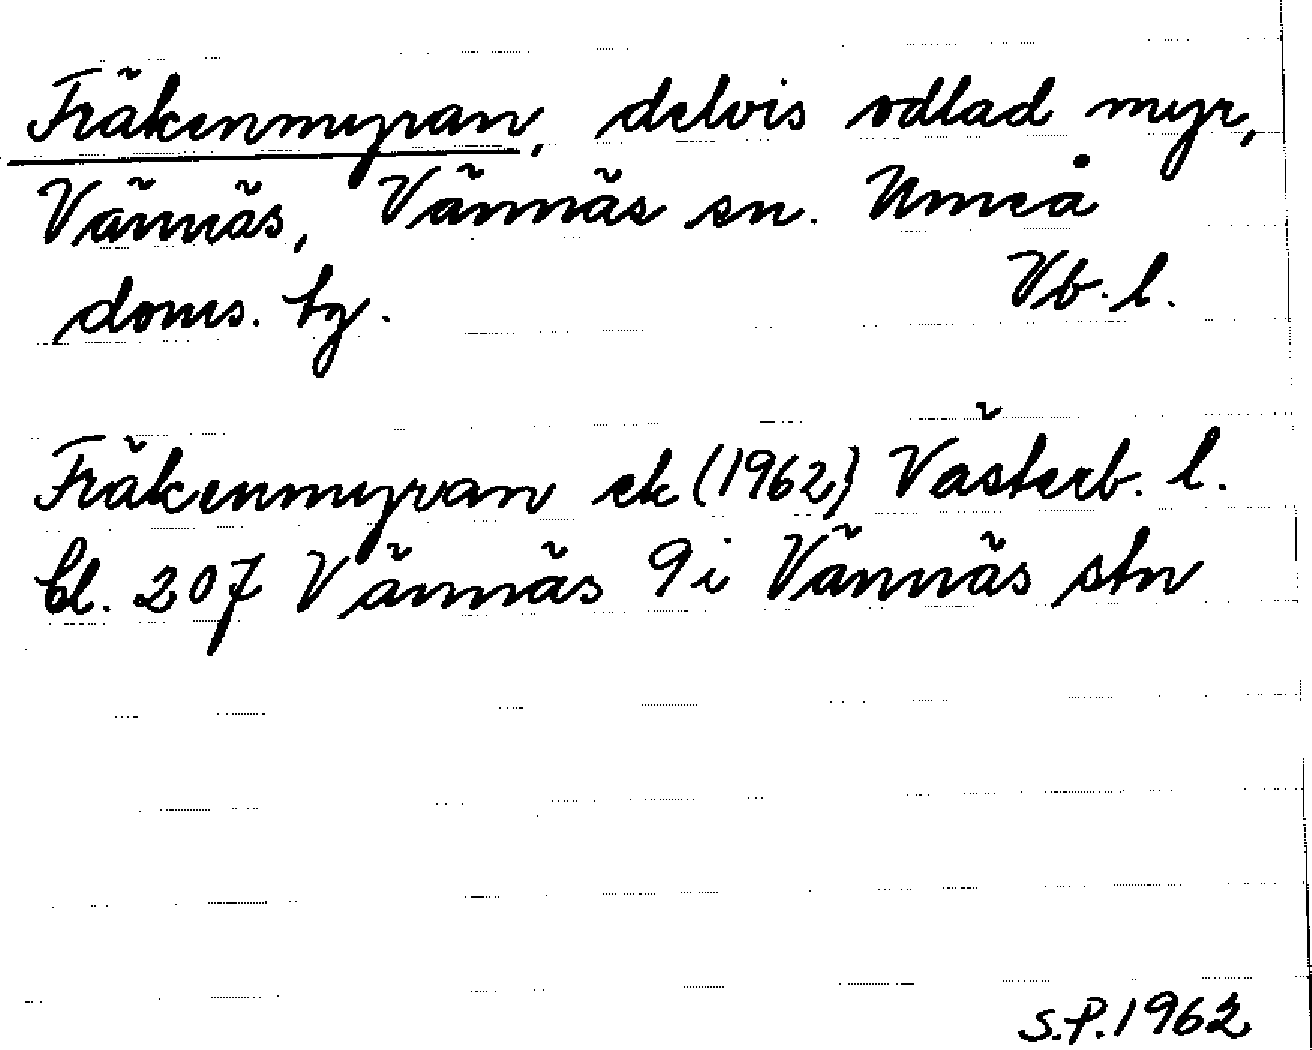 Fräkenmyran, delvis odlad myr,
Vännäs, Vännäs sn. Umeå
doms. hg. Vb. l.
Fräkenmyran ek (1962) Västerb. l.
bl. 207 Vännäs 9i Vännäs stn
S.P. 1962